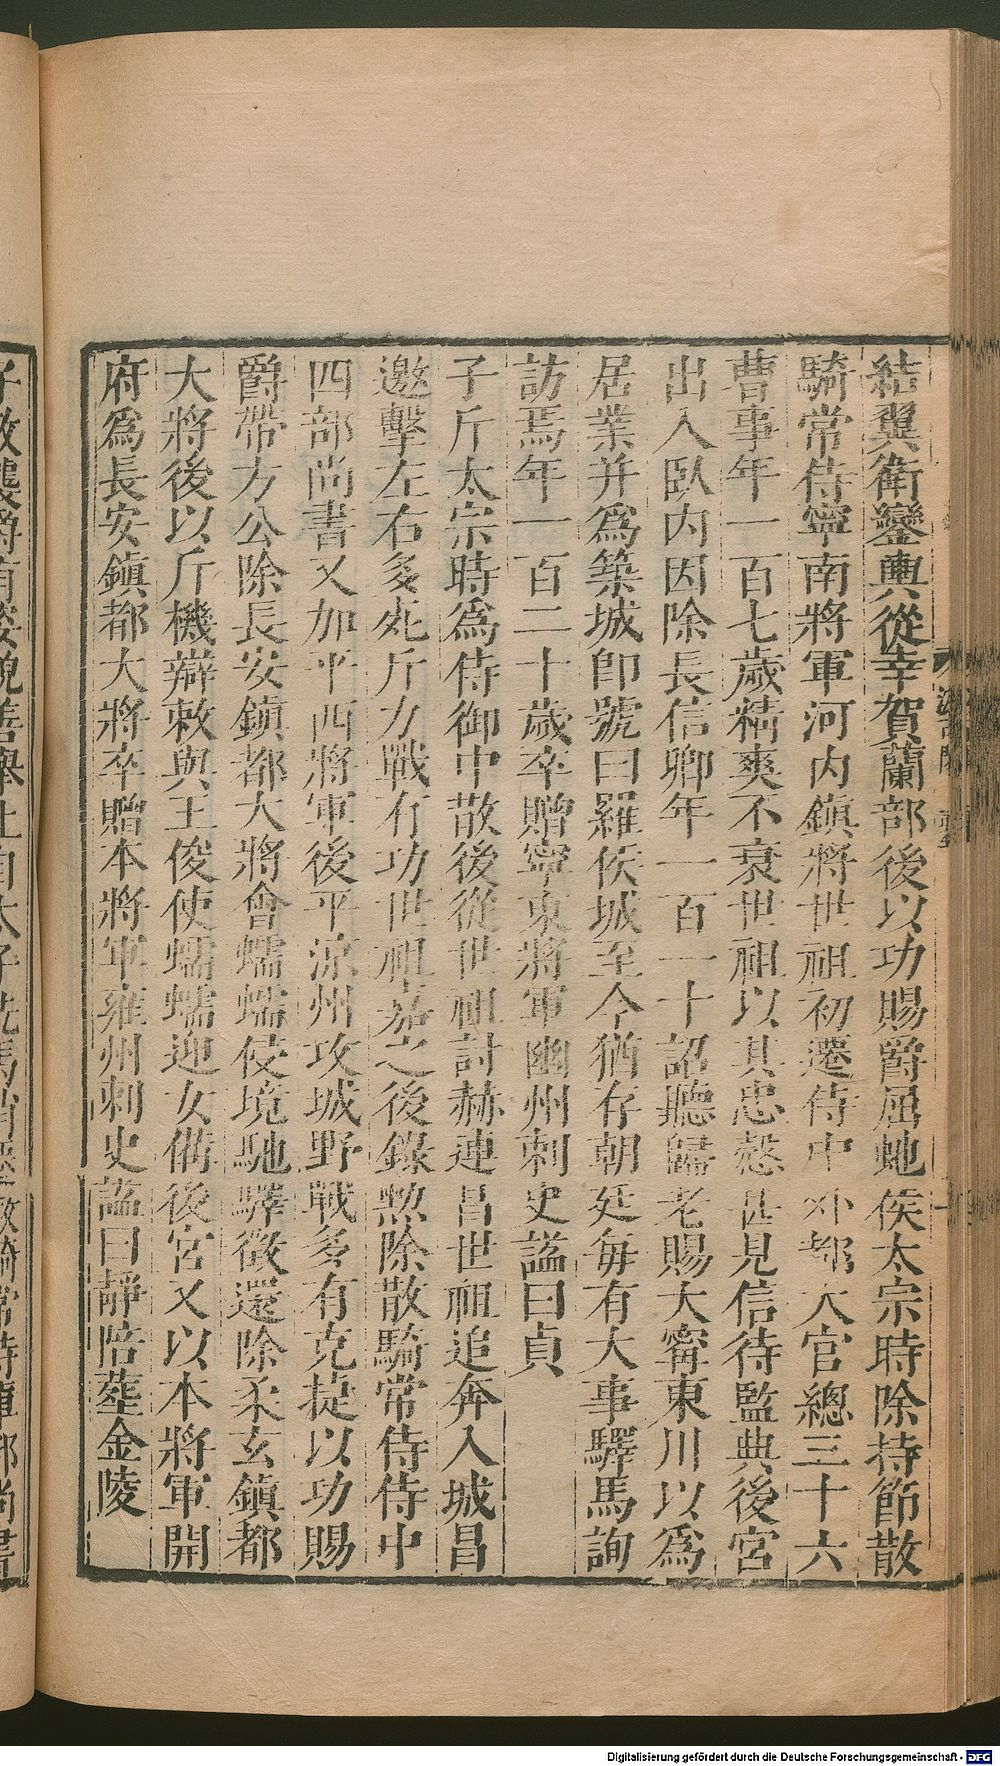 結翼衛鑾輿從幸賀蘭部後以功賜爵屈虵侯太宗時除持節散
騎常侍寧南將軍河內鎮將世祖初遷侍中外都大官總三十六
曹事年一百七歲精爽不衰世祖以其忠愨甚見信待監典後宮
出入臥內因除長信卿年一百一十詔聽歸老賜大甯東川以為
居業并為築城即號曰羅侯城至今猶存朝廷每有大事驛馬詢
訪焉年一百二十歲卒贈寧東將軍幽州刺史謚曰貞
子斤太宗時為侍御中散後從世祖討赫連昌世祖追奔入城昌
邀擊左右多死斤力戰有功世祖嘉之後錄勲除散騎常侍侍中
四部尚書又加平西將軍後平涼州攻城野戰多有克捷以功賜
爵帶方公除長安鎮都大將會蠕蠕侵境馳驛徵還除柔玄鎮都
大將後以斤機辯敕與王俊使蠕蠕迎女備後宮又以本將軍開
府為長安鎮都大將卒贈本將軍雍州刺史謚曰靜陪葬金陵
Digitalisierung gefördert durch die Deutsche Forschungsgemeinschaft - DFG